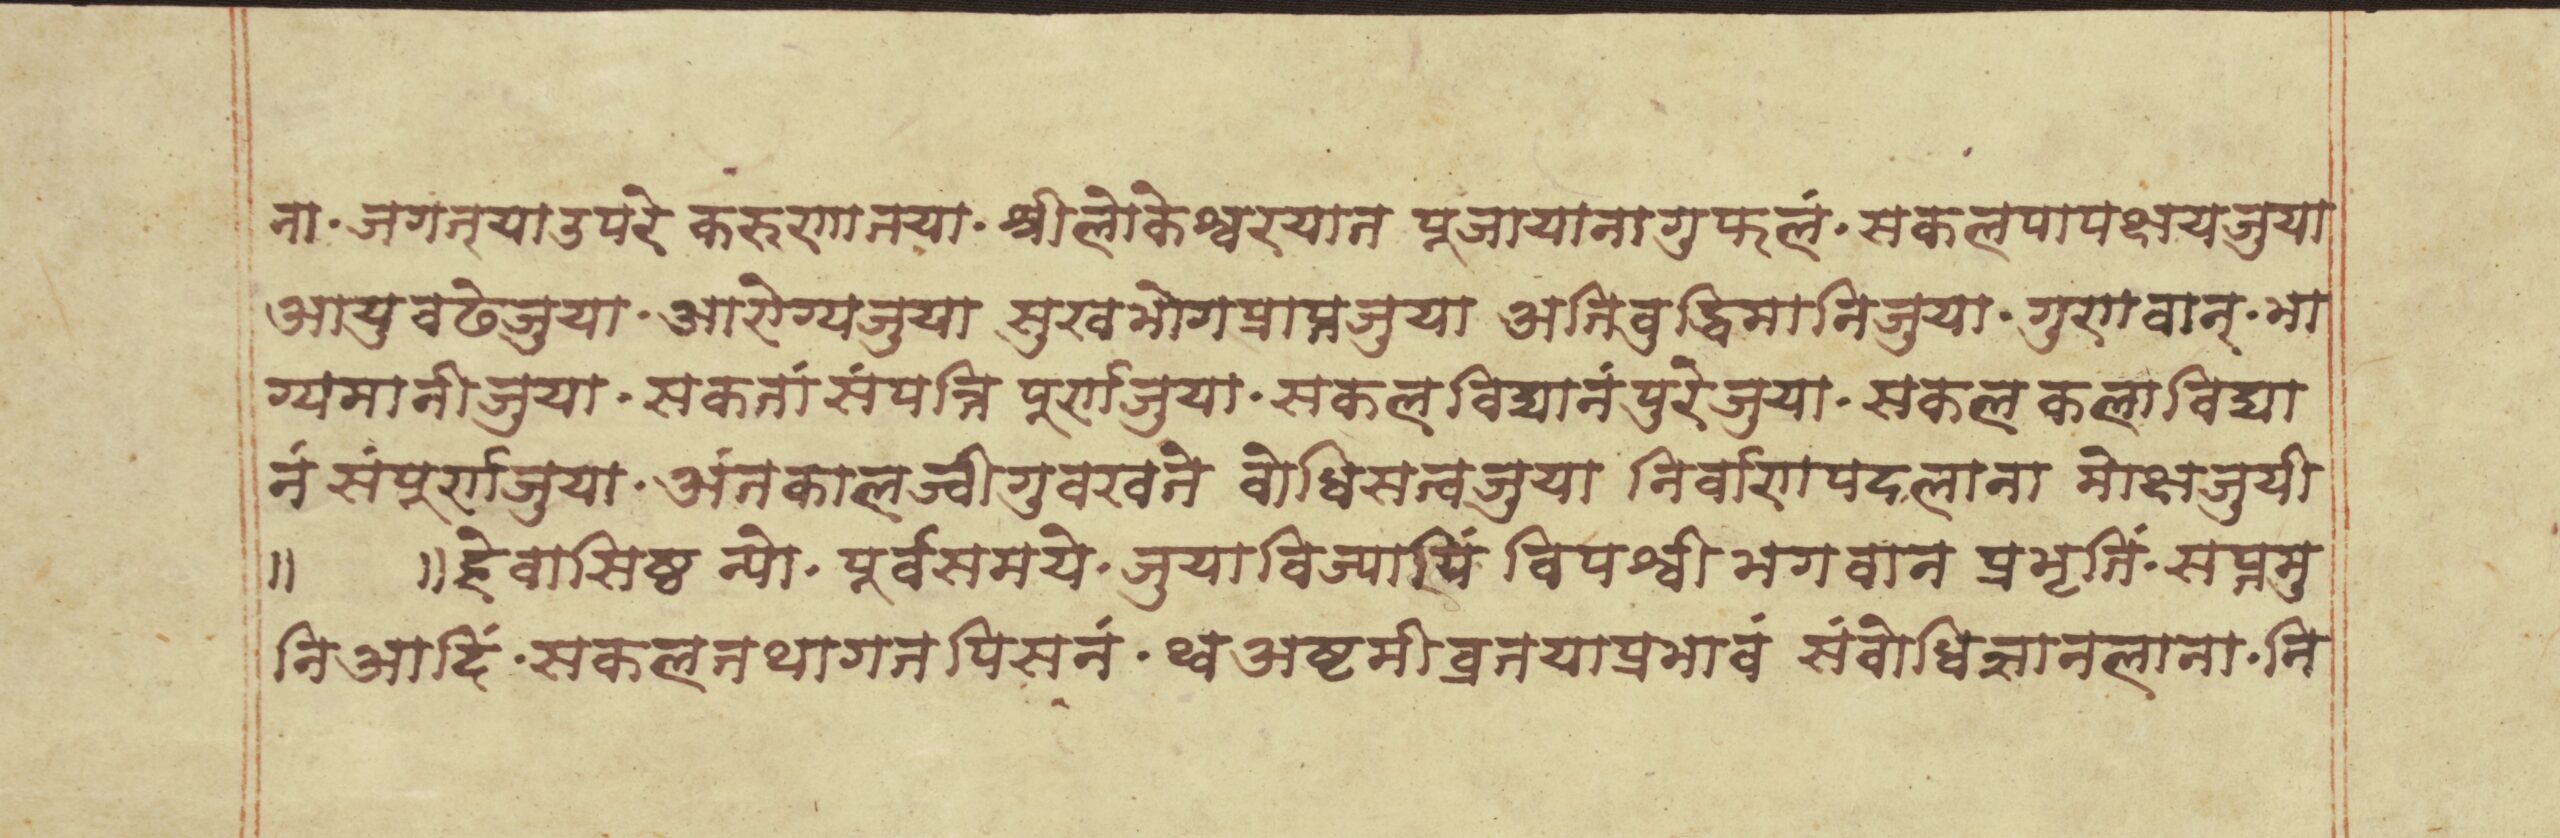 ना · जगत्या उपरे करुणातया · श्रीलोकेश्वरयात पूजायानागुफलं · सकलपापक्षयजुया
आयुवढेजुया · आरोग्यजुया सुखभोगप्राप्तजुया अतिवुद्धिमानिजुया · गुणवान् · भा
ग्यमानीजुया · सकतां संपत्ति पूर्णजुया · सकलविद्यानं पुरेजुया · सकलकलाविद्या
नं संपूर्णजुया · अंतकालज्वीगुवखते वोधिसत्वजुया निर्वाणपदलाना मोक्षजुयी
॥ ॥ हेवासिष्ठ न्यो · पूर्वसमये · जुयाविज्यापिं विपश्वी भगवान प्रभृतिं · सप्तमु
निआदिं · सकलतथागतपिसनं · थ्व अष्टमीव्रतयाप्रभावं संवोधिज्ञानलाना · नि